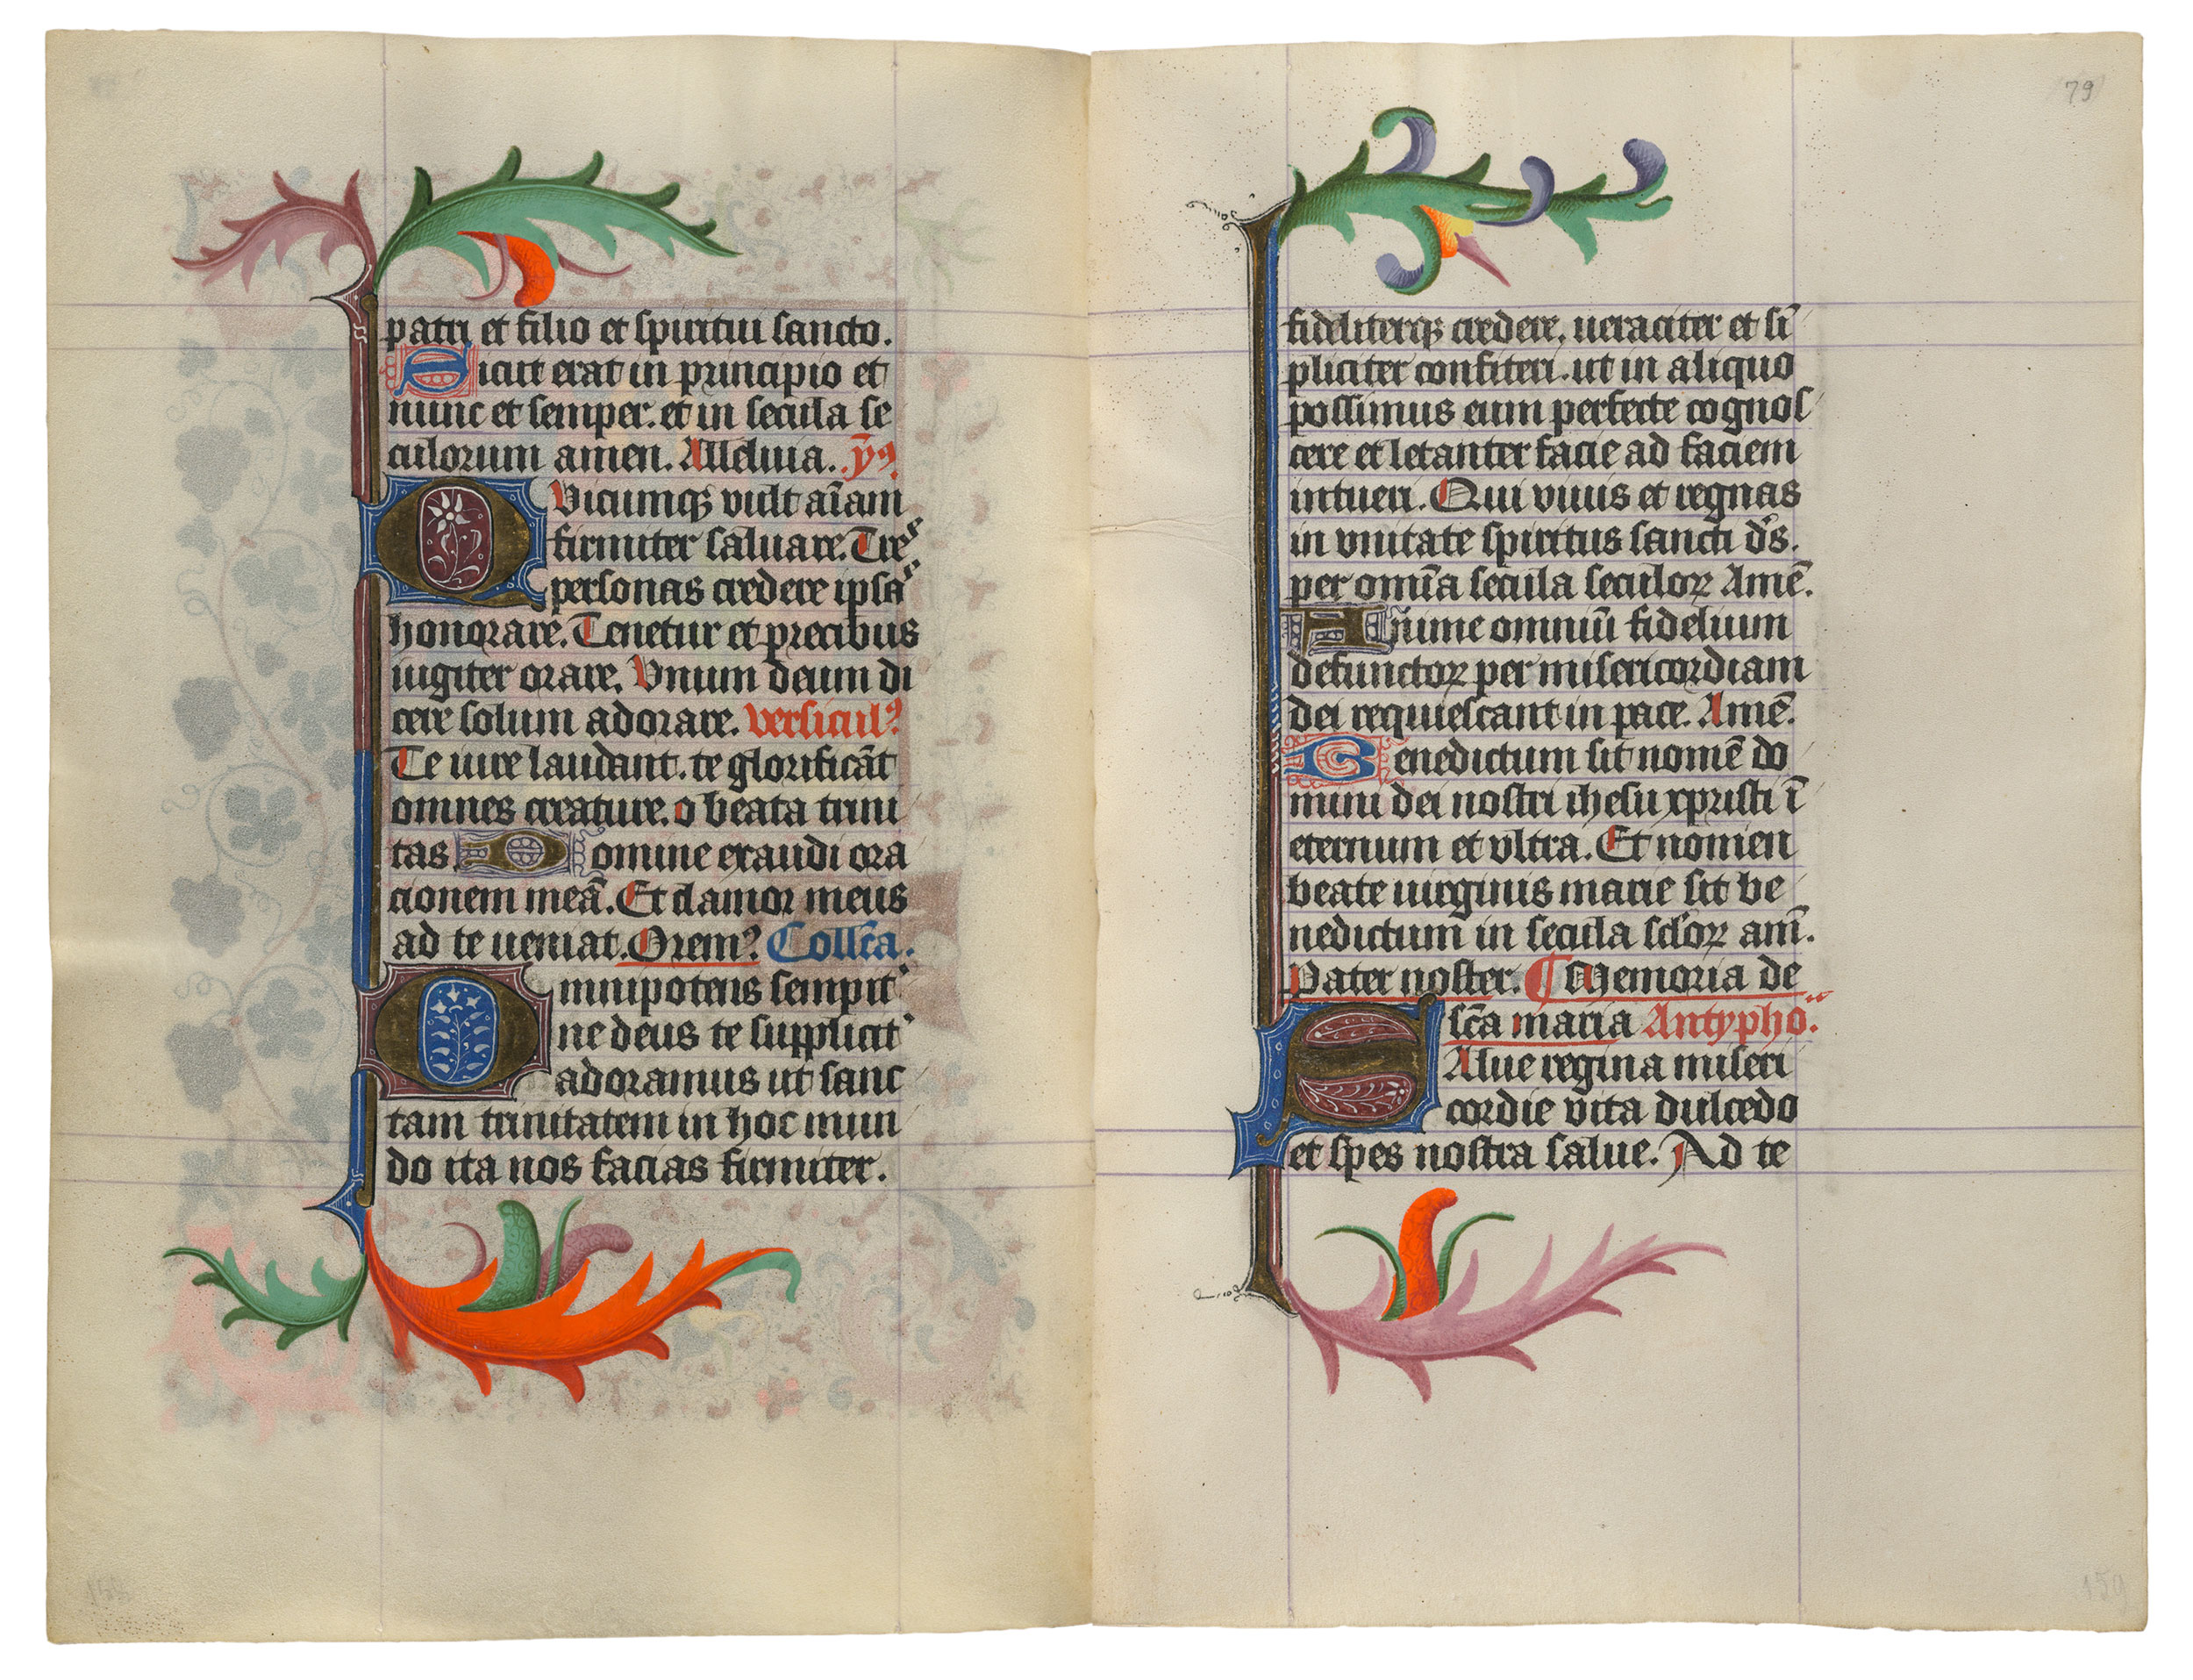 patri et filio et spiritui sancto.
Sicut erat in principio et
nunc et semper. et in secula se
culorum amen. Alleluia. ꝟꝰ
Quicumqꝫ vult aīam
firmiter saluare. Tres
personas credere ipsas
honorare. Tenetur et precibus
iugiter orare. Vnum deum di
cere solum adorare. versiculꝰ
Te iure laudant. te glorificāt
omnes creature. o beata trini
tas. Domine exaudi ora
cionem meā. Et clamor meus
ad te ueniat. Oremꝰ Collc̄a.
Omnipotens sempit᷑
ne deus te supplicit᷑
adoramus ut sanc
tam trinitatem in hoc mun
do ita nos facias firmiter.
79
fideliterqꝫ credere. ueraciter et sī
pliciter confiteri. ut in aliquo
possimus eum perfecte cognos
cere et letanter facie ad faciem
intueri. Qui viuis et regnas
in vnitate spiritus sancti d̄s.
per om̄ia secula seculoꝝ Amē.
Anime omniū fidelium
defunctoꝝ per misericordiam
dei requiescant in pace. Amē.
Benedictum sit nomē do
mini dei nostri ihesu xpristi ī
eternum et vltra. Et nomen
beate uirginis marie sit be
nedictum in secula sclōꝝ am̄.
Pater noster. ¶ Memoria de
sc̄a maria Antypho.
Salue regina miseri
cordie vita dulcedo
et spes nostra salue. Ad te
159